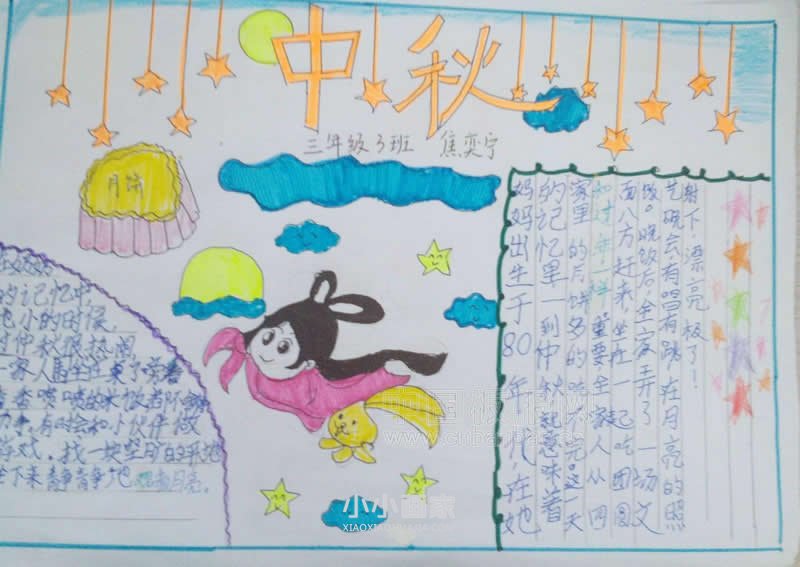 中秋
三年级3班 焦奕宁
月饼
的记忆中,
小的时候,
时仲秋很热闹
一家人围坐在
有时会和小伙伴做
游戏,找一块空旷的
坐下来静静地观看月亮。
妈妈出生于80年代,在她
的记忆里一到中秋就意味着
家里的月饼多的吃不完。这一天
和过年一样重要全家人从四
面八方赶来,坐在一起吃团圆
饭。晚饭后,全家弄了一场文
艺晚会有唱有跳在月亮的照
射下,漂亮极了!
小小画家
XIAOXIAOHUAJIA.COM